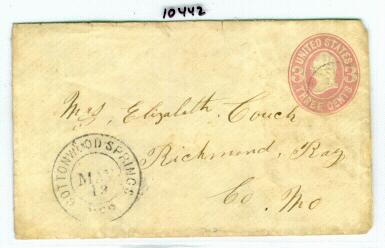 10442
UNITED STATES
THREE CENTS
Mrs Elizabeth Couch
Richmond, Ray
Co. Mo
COTTONWOOD SPRINGS
MAY
12